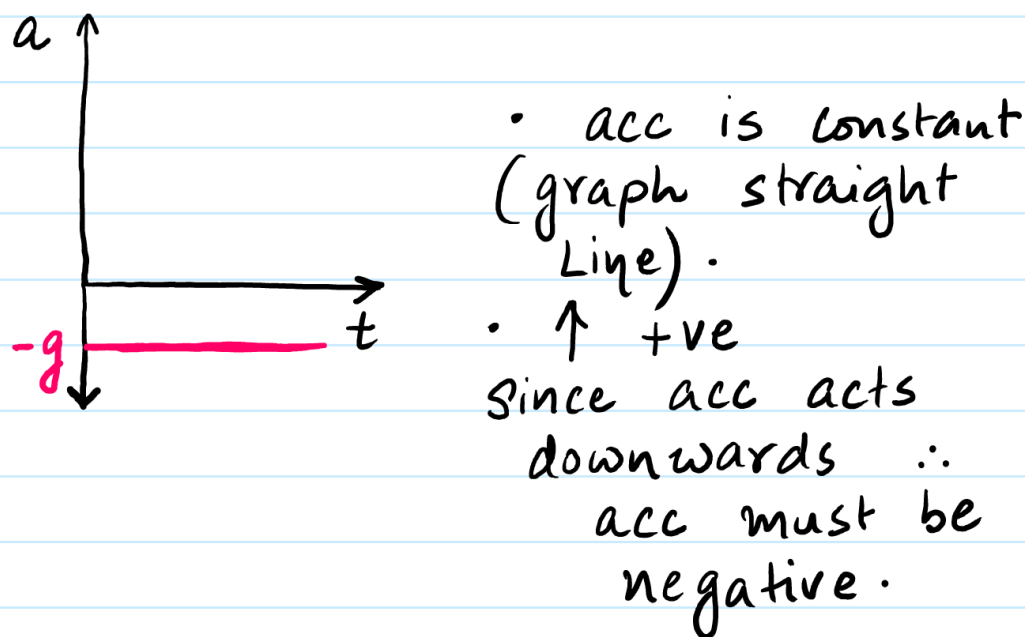 a
t
-g
· acc is constant
(graph straight
Line).
· ↑ +ve
since acc acts
downwards ∴
acc must be
negative.